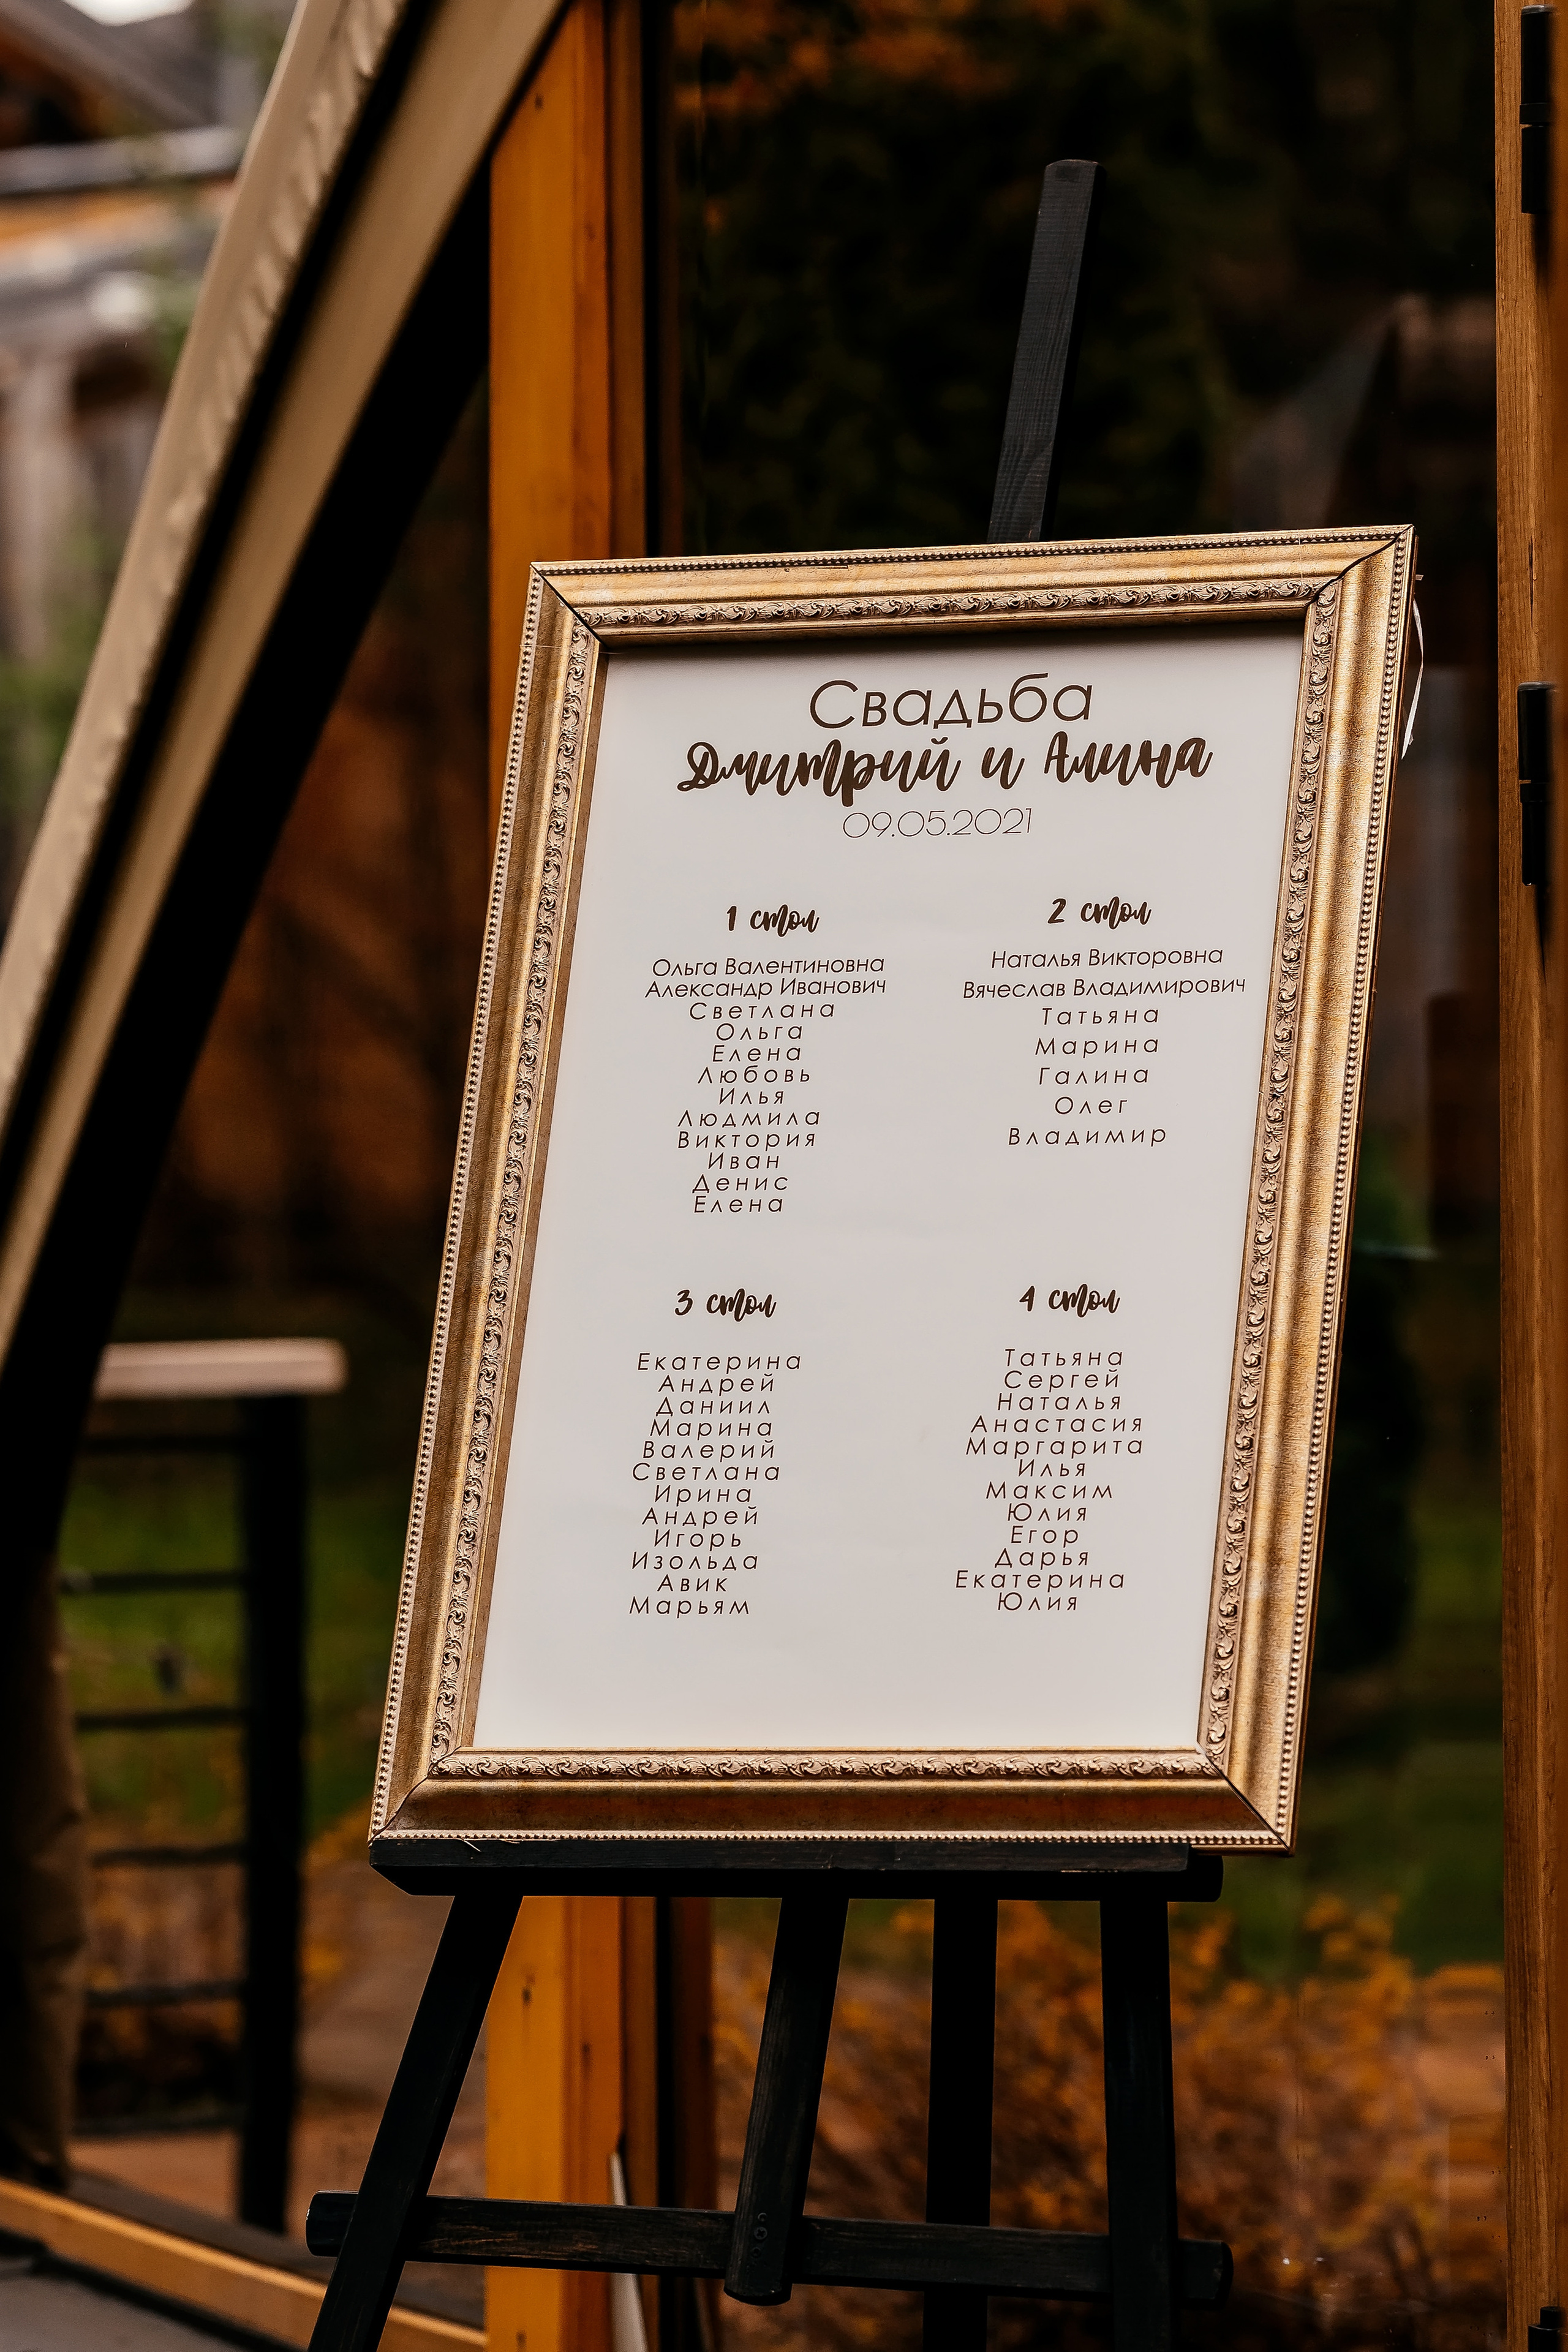 Свадьба
Дмитрий и Алина
09.05.2021
1 стол
Ольга Валентиновна
Александр Иванович
Светлана
Ольга
Елена
Любовь
Илья
Людмила
Виктория
Иван
Денис
Елена
2 стол
Наталья Викторовна
Вячеслав Владимирович
Татьяна
Марина
Галина
Олег
Владимир
3 стол
Екатерина
Андрей
Даниил
Марина
Валерий
Светлана
Ирина
Андрей
Игорь
Изольда
Авик
Марьям
4 стол
Татьяна
Сергей
Наталья
Анастасия
Маргарита
Илья
Максим
Юлия
Егор
Дарья
Екатерина
Юлия